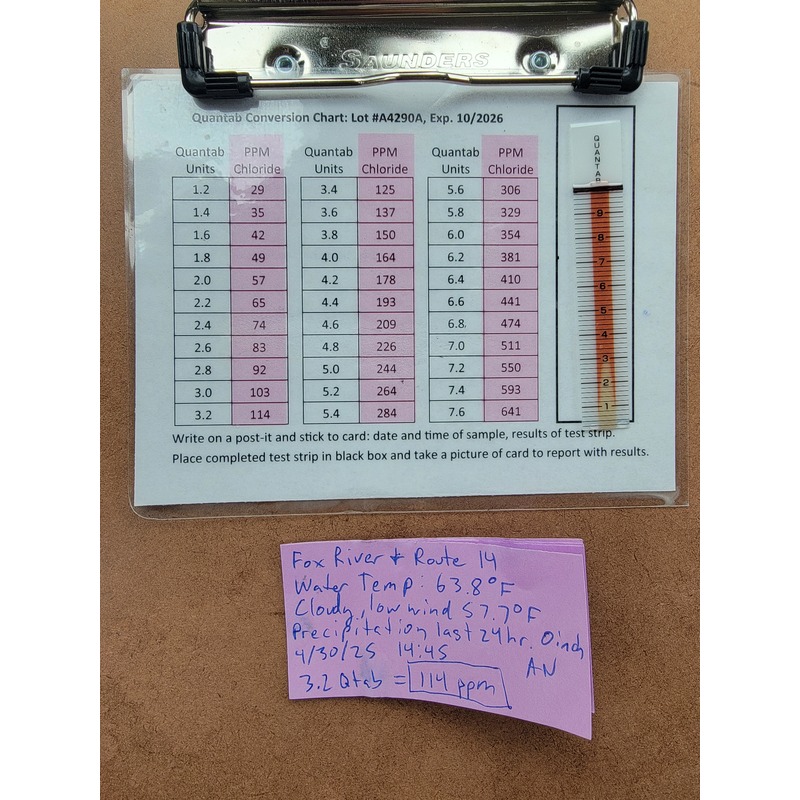 SAUNDERS
Quantab Conversion Chart: Lot #A4290A, Exp. 10/2026
Quantab Units PPM Chloride Quantab Units PPM Chloride Quantab Units PPM Chloride
1.2 29 3.4 125 5.6 306
1.4 35 3.6 137 5.8 329
1.6 42 3.8 150 6.0 354
1.8 49 4.0 164 6.2 381
2.0 57 4.2 178 6.4 410
2.2 65 4.4 193 6.6 441
2.4 74 4.6 209 6.8 474
2.6 83 4.8 226 7.0 511
2.8 92 5.0 244 7.2 550
3.0 103 5.2 264 7.4 593
3.2 114 5.4 284 7.6 641
QUANTAB
9
8
7
6
5
4
3
2
1
Write on a post-it and stick to card: date and time of sample, results of test strip.
Place completed test strip in black box and take a picture of card to report with results.
Fox River & Route 14
Water Temp: 63.8°F
Cloudy, low wind 57.7°F
Precipitation last 24hr. 0inch
4/30/25 14:45 AN
3.2 Qtab = 114 ppm